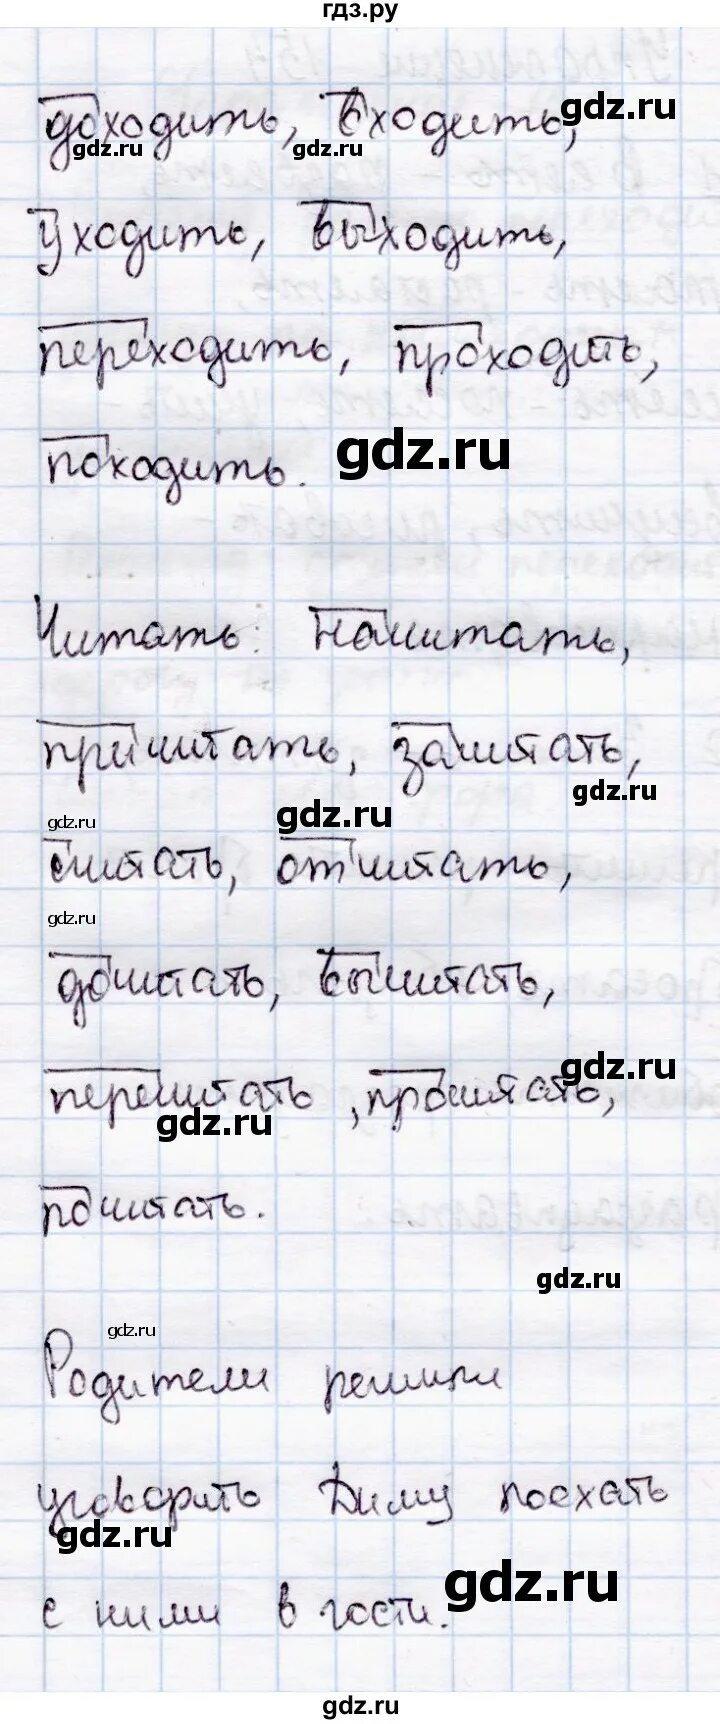 гдз.ру
доходить, входить,
gdz.ru gdz.ru gdz.ru
уходить, выходить,
переходить, проходить,
походить. gdz.ru
Читать: начитать,
причитать, зачитать,
gdz.ru gdz.ru gdz.ru
считать, отчитать,
gdz.ru
дочитать, вычитать,
gdz.ru
перечитать, прочитать,
gdz.ru
почитать.
gdz.ru
gdz.ru
Родители решили
уговорить Диму поехать
gdz.ru
с ними в гости.
gdz.ru
gdz.ru